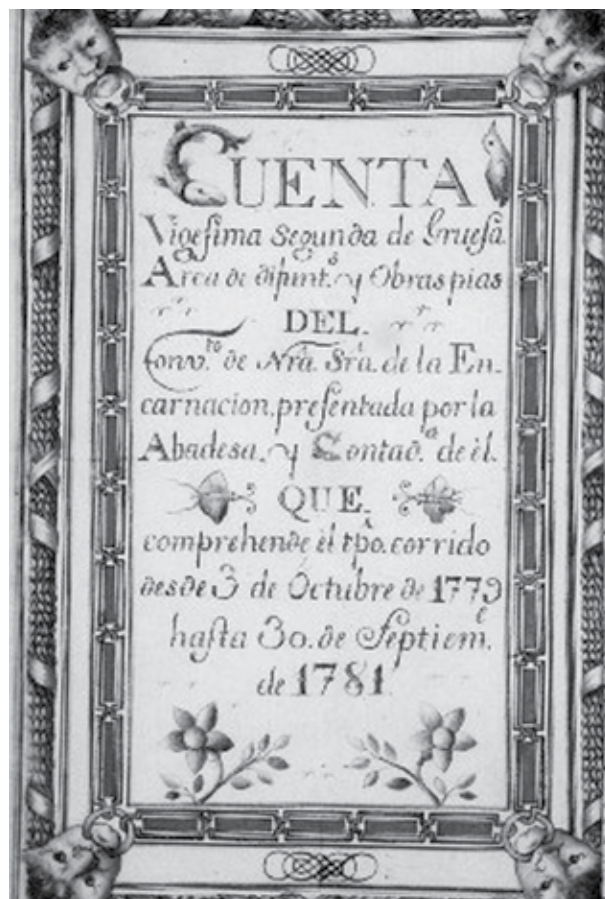 CUENTA
Vigesima Segunda de Gruesa
Arca de dipint.ˢ y Obras pias
DEL.
Conv.ᵗᵒ de Nrã. Srã. de la En-
carnacion, presentada por la
Abadesa, y Contad.ᵃ de él.
QUE.
comprehende el tpõ. corrido
desde 3 de Octubre de 1779
hasta 30. de Septiem.ᵉ
de 1781